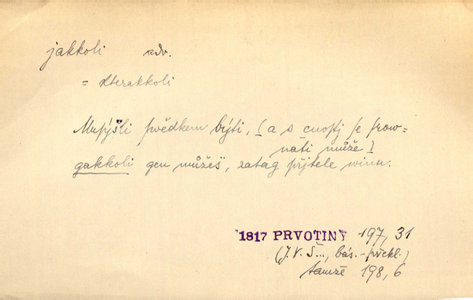 jakkoli adv.
= kterakkoli
Musýšli swědkem býti, [a s cnostj se srow-
nati může]
gakkoli gen můžeš, zatag přjtele winu.
1817 PRVOTINY 197, 31
(J. V. Š..., bás.-překl.)
tamže 198, 6